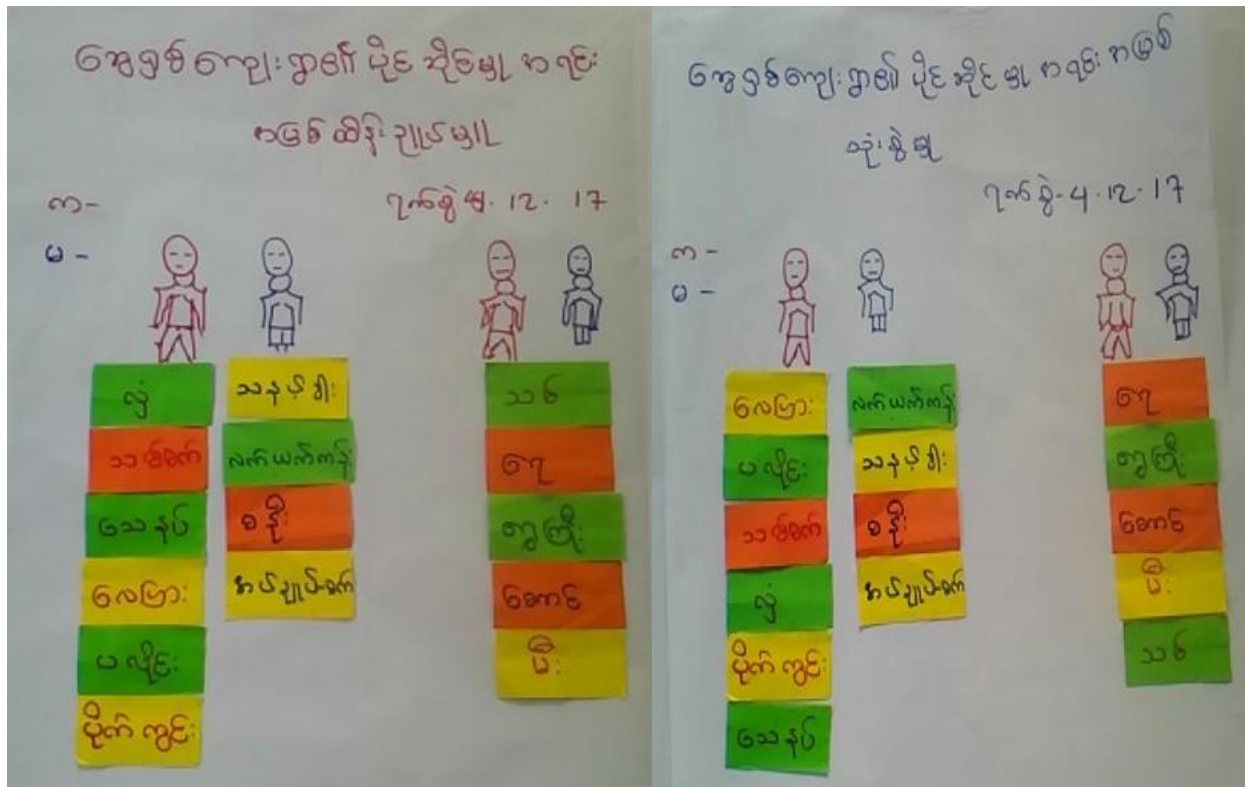 အေးရှစ်ကျေးရွာ၏ ပိုင်ဆိုင်မှု အရင်း
အမြစ်ထိန်းချုပ်မှု
က-
ရက်စွဲ 4. 12. 17
မ -
လှံ
သစ်စက်
သေနပ်
လေမြား
ပလိုင်း
ပိုက်ကွင်း
သနပ်ခါး
လက်ယက်ကန်း
စနိုး
အပ်ချုပ်စက်
သစ်
ရေ
ကြွကြီး
တောင်
မီး
အေးရှစ်ကျေးရွာ၏ ပိုင်ဆိုင်မှု အရင်းအမြစ်
သုံးစွဲမှု
ရက်စွဲ- 4.12.17
က -
မ -
လေမြား
ပလိုင်း
သစ်စက်
လှံ
ပိုက်ကွင်း
သေနပ်
လက်ယက်ကန်း
သနပ်ခါး
စနိုး
အပ်ချုပ်စက်
ရေ
ကြွကြီး
တောင်
မီး
သစ်